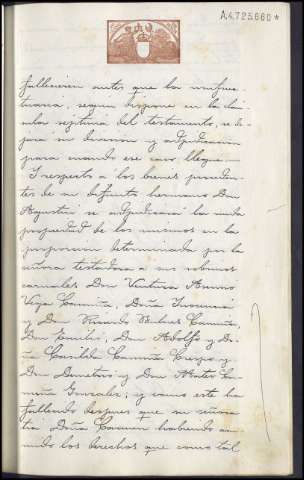 A.4.723.660*
fallecieren antes que la usufruc-
tuaria, segun dispone en la clau-
sula septima del testamento, se de-
jara su division y adjudicacion
para cuando ese caso llegue.
Y respecto a los bienes proceden-
tes de su difunto hermano Don
Agustin se adjudicará la nuda
propiedad de los mismos en la
proporcion determinada por la
señora testadora a sus sobrinos
carnales Don Ventura
Vega Camuña, Doña Inocencia
y Don Ricardo Camuña,
Don Emilio, Don Adolfo y Do-
ña Casilda Camuña Crespo y
Don Demetrio y Don Mateo Ca-
muña Gonzalez; y como este ha
fallecido despues que su señora
tia Doña Carmen habiendo
los derechos que como tal